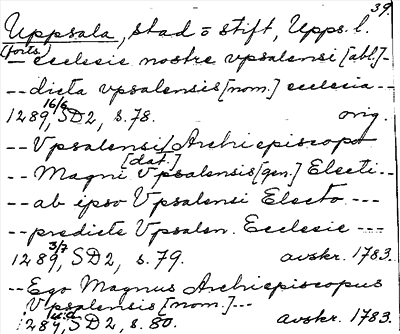 39.
Uppsala, stad o stift, Upps. l.
(forts.)
-- ecclesie nostre vpsalensi [abl.] --
-- dicta vpsalensis [nom.] ecclesia --
1289 16/6, SD2, s. 78. orig.
-- Vpsalensi Archiepiscopo
[dat.]
-- Magni Vpsalensis [gen.] Electi --
-- ab ipso Vpsalensi Electo ---
-- predicte Vpsalen. Ecclesie ---
1289 3/7, SD2, s. 79. avskr. 1783.
-- Ego Magnus Archiepiscopus
Vpsalensis [nom.] ---
1289 u.d., SD2, s. 80. avskr. 1783.